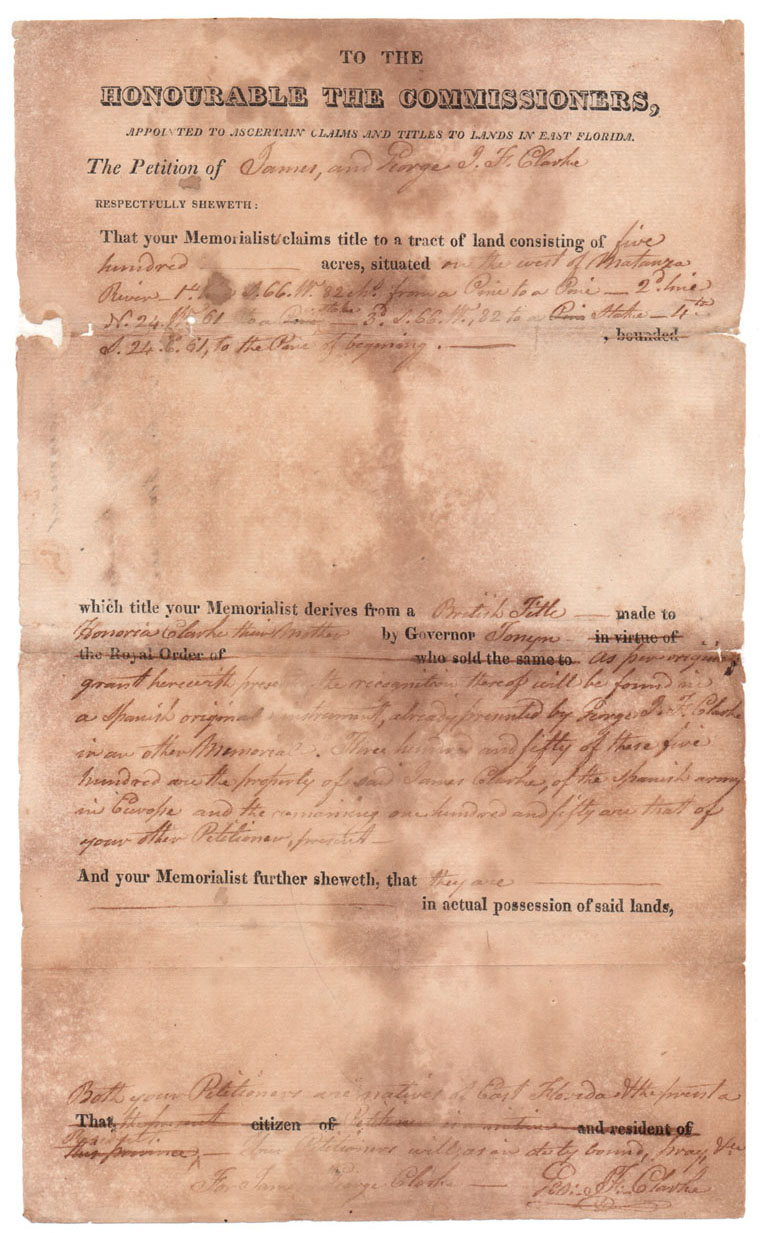 TO THE
HONOURABLE THE COMMISSIONERS,
APPOINTED TO ASCERTAIN CLAIMS AND TITLES TO LANDS IN EAST FLORIDA.
The Petition of James, and George J. F. Clarke
RESPECTFULLY SHEWETH:
That your Memorialist claims title to a tract of land consisting of five
hundred acres, situated on the west of Matanza
River — 1st S. 66. W. 82 chs. from a Pine to a Pine — 2d. line
N. 24. W. 61 to a Pine stake — 3d. S. 66. W., 82 to a Pine Stake — 4th
, bounded
S. 24. E. 61, to the Pine of begening. —
which title your Memorialist derives from a British Title — made to
Honoria Clarke their Mother by Governor Tonyn in virtue of
the Royal Order of who sold the same to As per original
grant herewith the recognition thereof will be found in
a Spanish original instrument, already presented by George J. F. Clarke
in an other Memorial. Three hundred and fifty of these five
hundred are the property of said James Clarke, of the Spanish army
in Europe and the remaining one hundred and fifty are that of
your other Petitioner, present —
And your Memorialist further sheweth, that they are
in actual possession of said lands,
Both your Petitioners are natives of East Florida & the present a
That, the present citizen of Petitioner is a native and resident of
this province, — Your Petitioners will, as in duty bound, pray, &c
For James George Clarke — Geo: J. F. Clarke